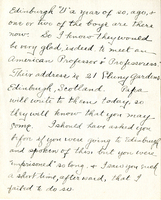 Edinburgh U a year or so, ago, &
one or two of the boys are there
now. So I know they would
be very glad, indeed to meet an
American Professor & Professoress.
Their address is 21 Gardens
Edinburgh, Scotland. Papa
will write to them today, so
they will know that you may
come. I should have asked you
before if you were going to Edinburgh
and spoken of these but you were
so long, & I saw you such
a short time, afterward, that I
failed to do so.